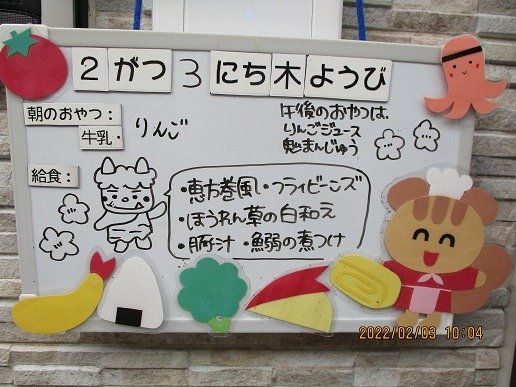 2がつ3にち木ようび
朝のおやつ:
牛乳・りんご
午後のおやつは、
りんごジュース
鬼まんじゅう
給食:
・恵方巻風・フライビーンズ
・ほうれん草の白和え
・豚汁・鰯の煮つけ
2022/02/03 10:04